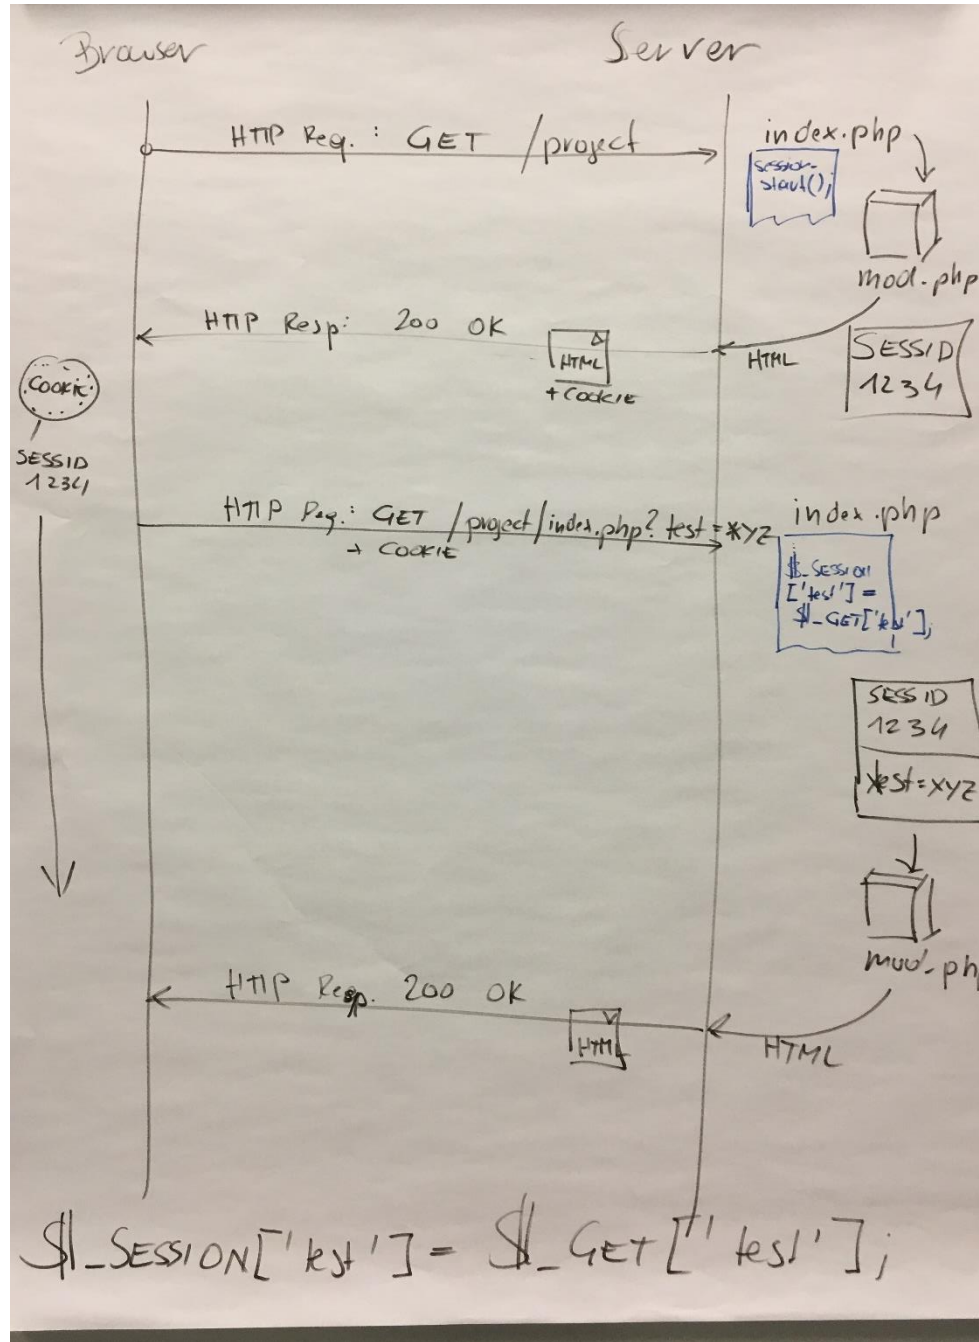 Browser
Server
HTTP Req.: GET /project
index.php
session-
start();
mod.php
HTTP Resp: 200 OK
HTML
+ COOKIE
HTML
SESSID
1234
COOKIE
SESSID
1234
HTTP Req.: GET /project/index.php?test=XYZ
+ COOKIE
index.php
$_SESSION
['test'] =
$_GET['test'];
SESSID
1234
test=XYZ
mod-ph
HTTP Resp. 200 OK
HTML
HTML
$_SESSION['test'] = $_GET['test'];